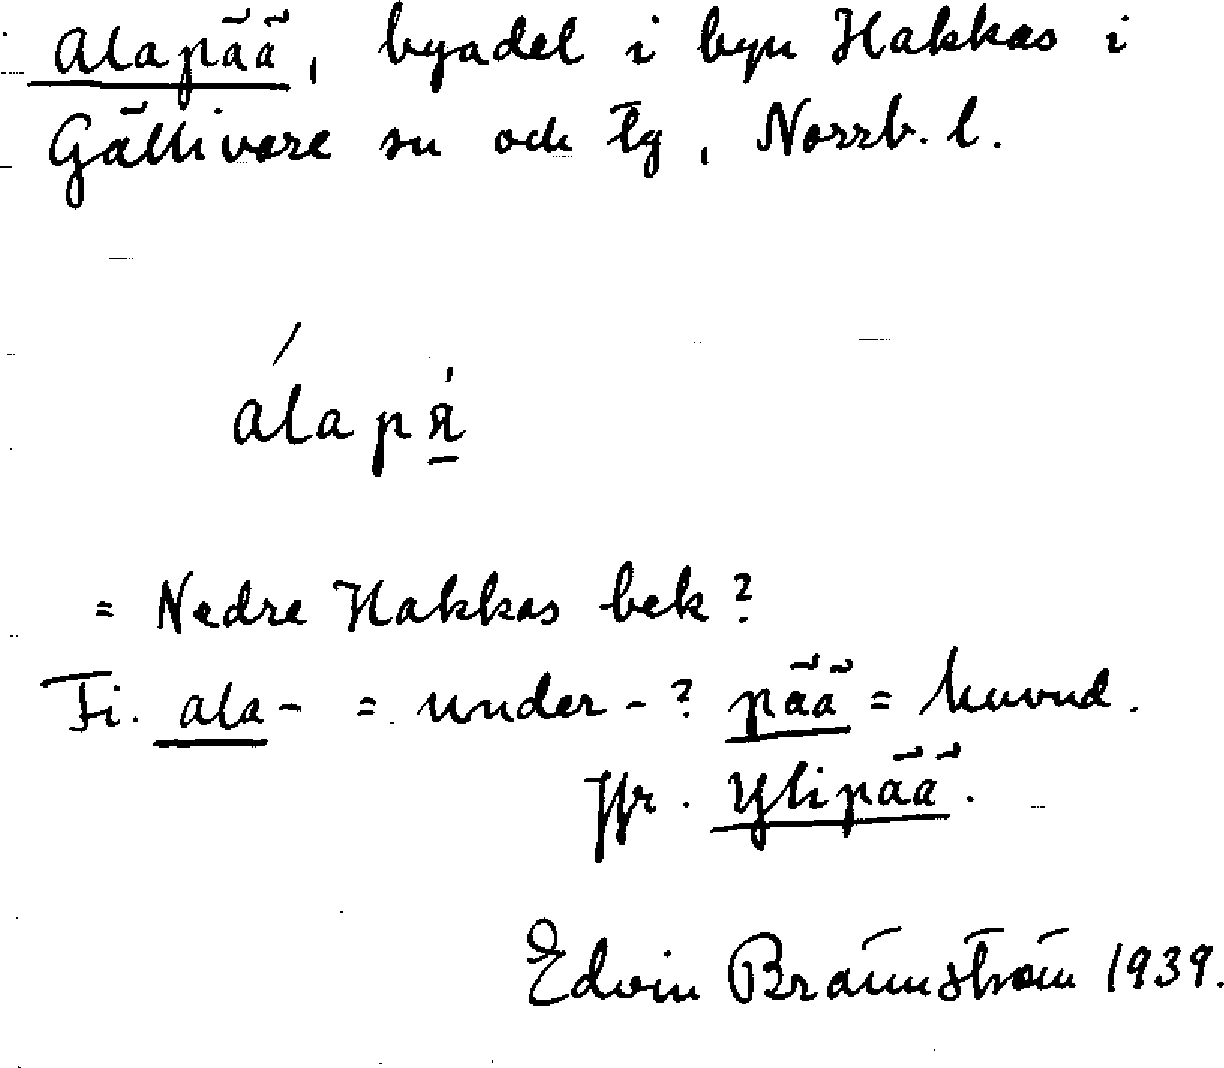 Alapää, byadel i byn Hakkas i
Gällivare sn och tg, Norrb. l.
= Nedre Hakkas bek?
Fi. ala- = under-? pää = huvud.
Jfr. Ylipää.
Edvin Brännström 1939.